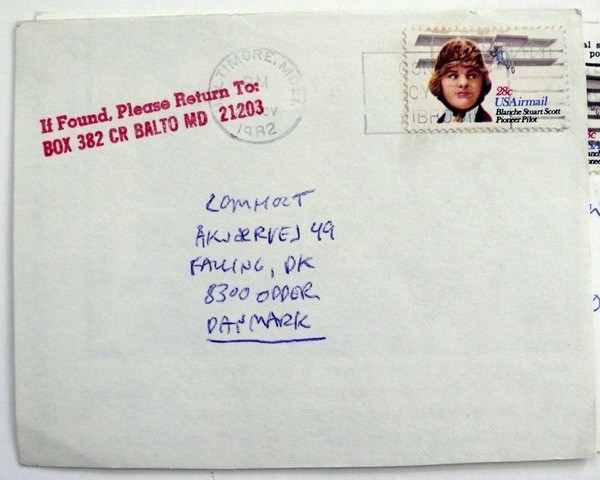 If Found, Please Return To:
BOX 382 CR BALTO MD 21203
BALTIMORE, MD
PM
NOV
1982
28c
USAirmail
Blanche Stuart Scott
Pioneer Pilot
LOMHOLT
ÅKJÆRVEJ 49
FALLING, DK
8300 ODDER
DANMARK